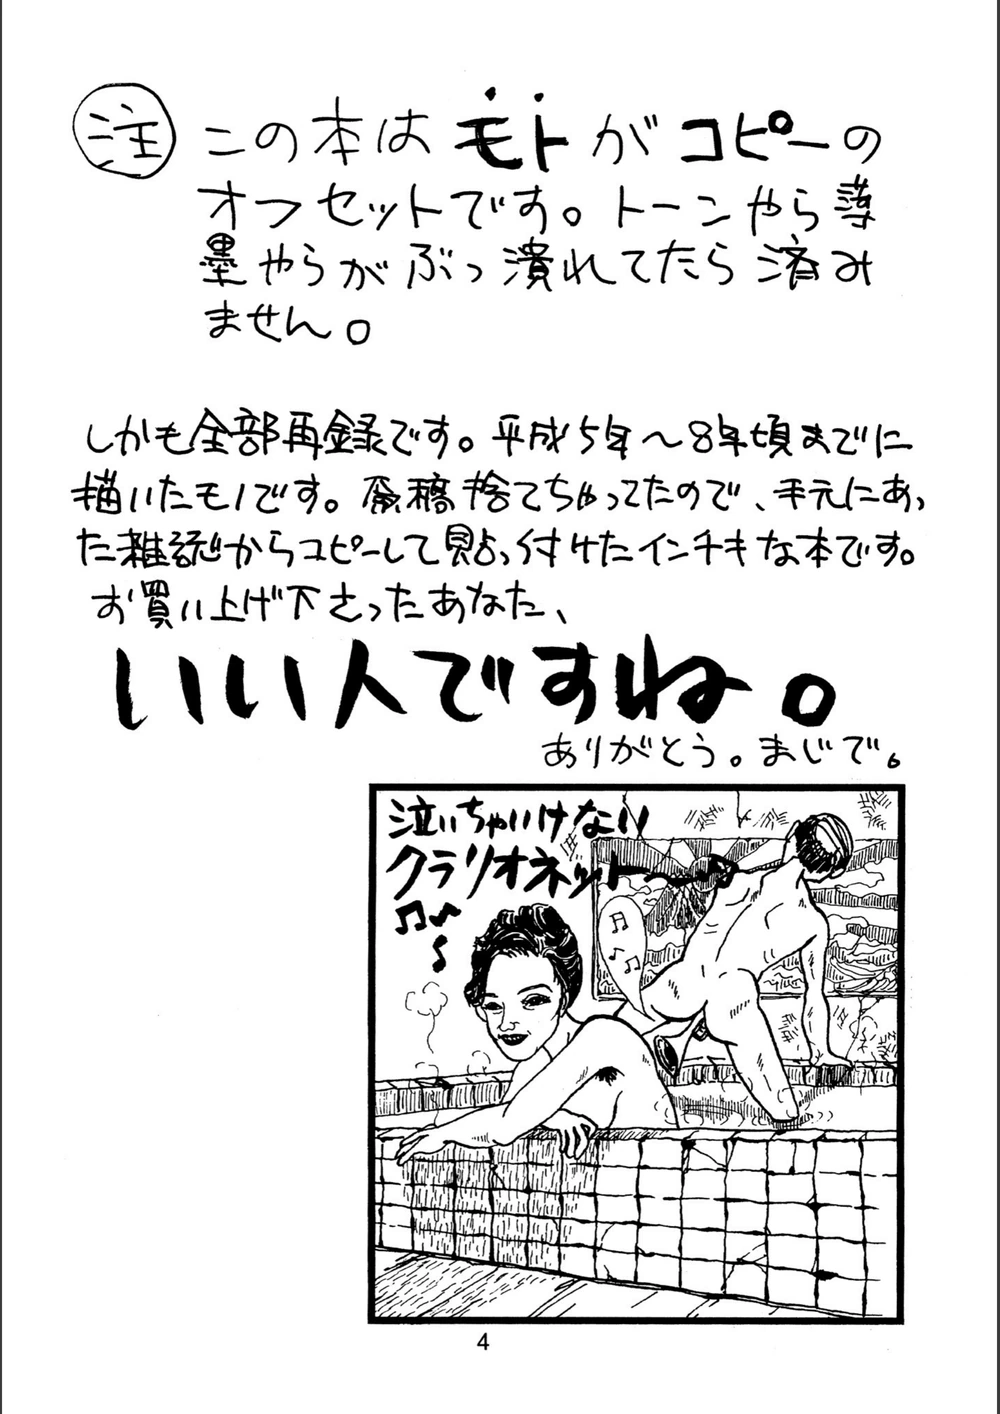 注 この本はモトがコピーの
オフセットです。トーンやら薄
墨やらがぶっ潰れてたら済み
ません。
しかも全部再録です。平成5年〜8年頃までに
描いたモノです。原稿捨てちゃってたので、手元にあっ
た雑誌からコピーして貼っ付けたインチキな本です。
お買い上げ下さったあなた、
いい人ですね。
ありがとう。まじで。
泣いちゃいけない
クラリオネット〜♪
♫〜
♪
♫
♪♫
4